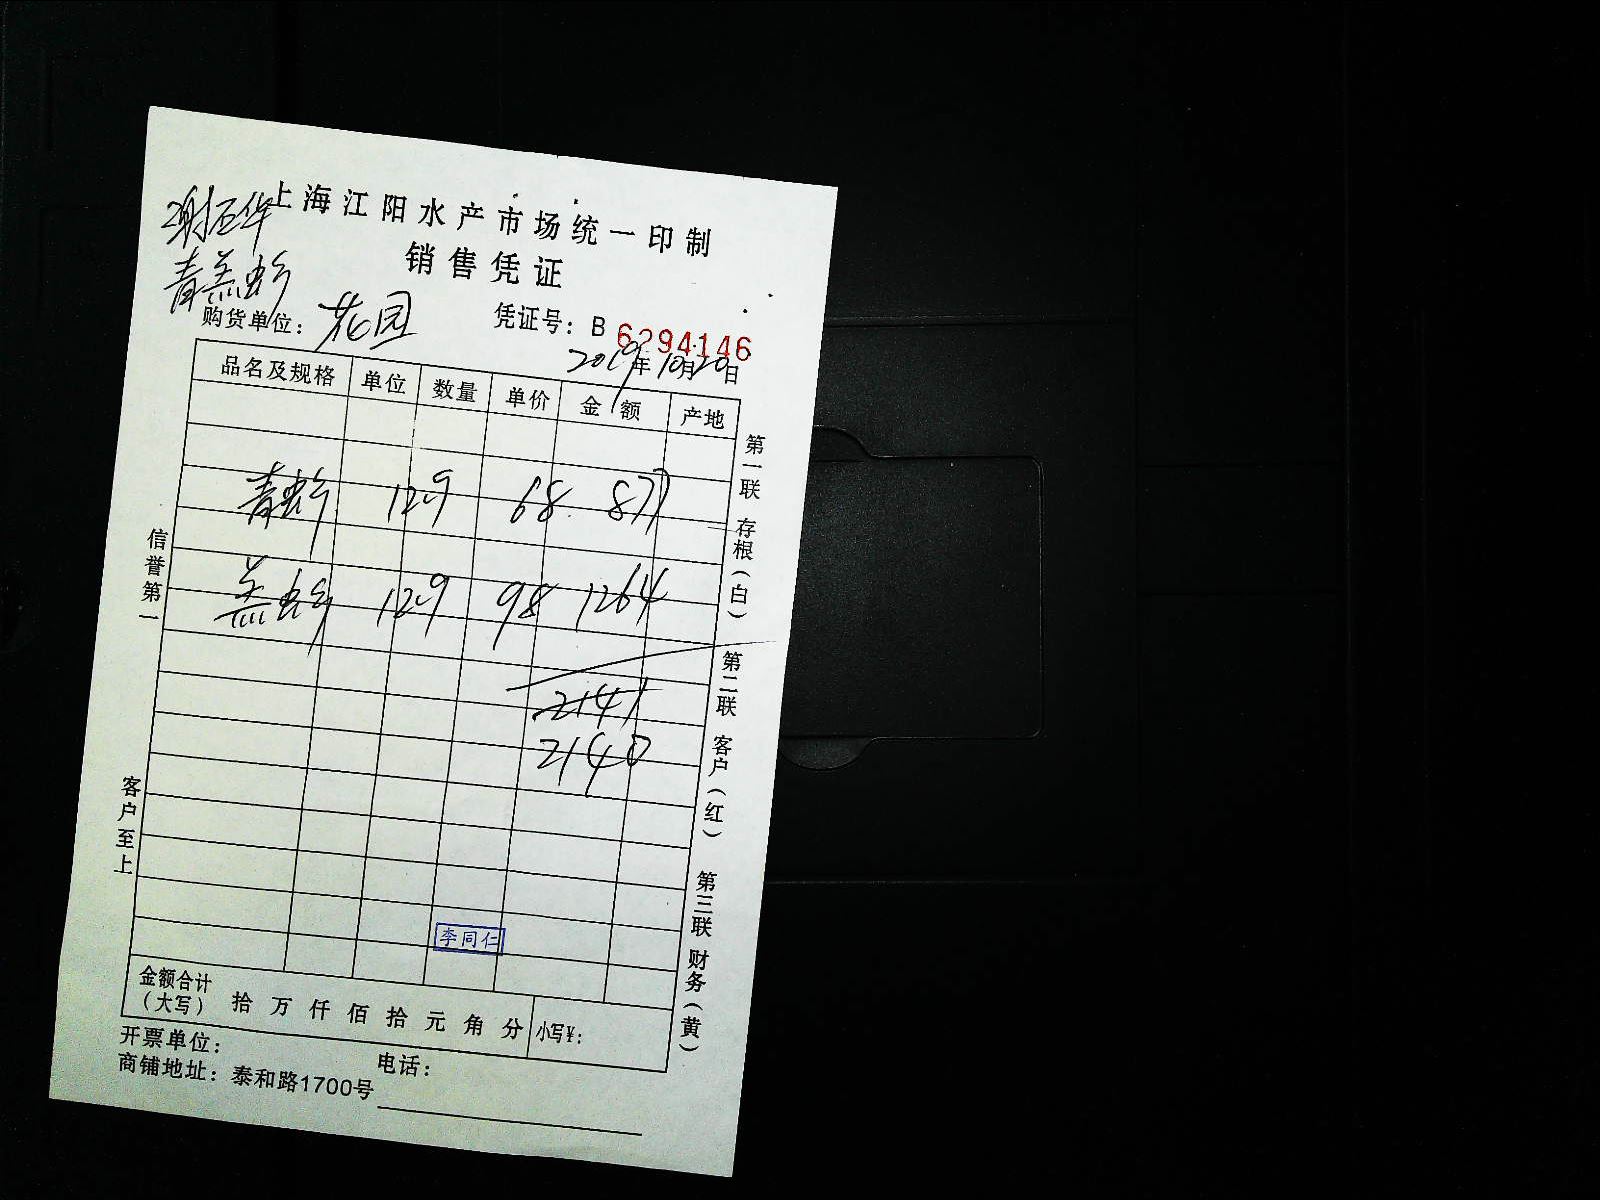 上海江阳水产市场统一印制
销售凭证
青羔蟹
购货单位：花园
凭证号：B 6294146
2019年10月20日
品名及规格 单位 数量 单价 金额 产地
青蟹 12.9 68 877
羔蟹 12.9 98 1264
2141
2140
李同仁
金额合计（大写） 拾 万 仟 佰 拾 元 角 分 小写¥：
开票单位： 电话：
商铺地址：泰和路1700号
信誉第一
客户至上
第一联 存根（白）
第二联 客户（红）
第三联 财务（黄）